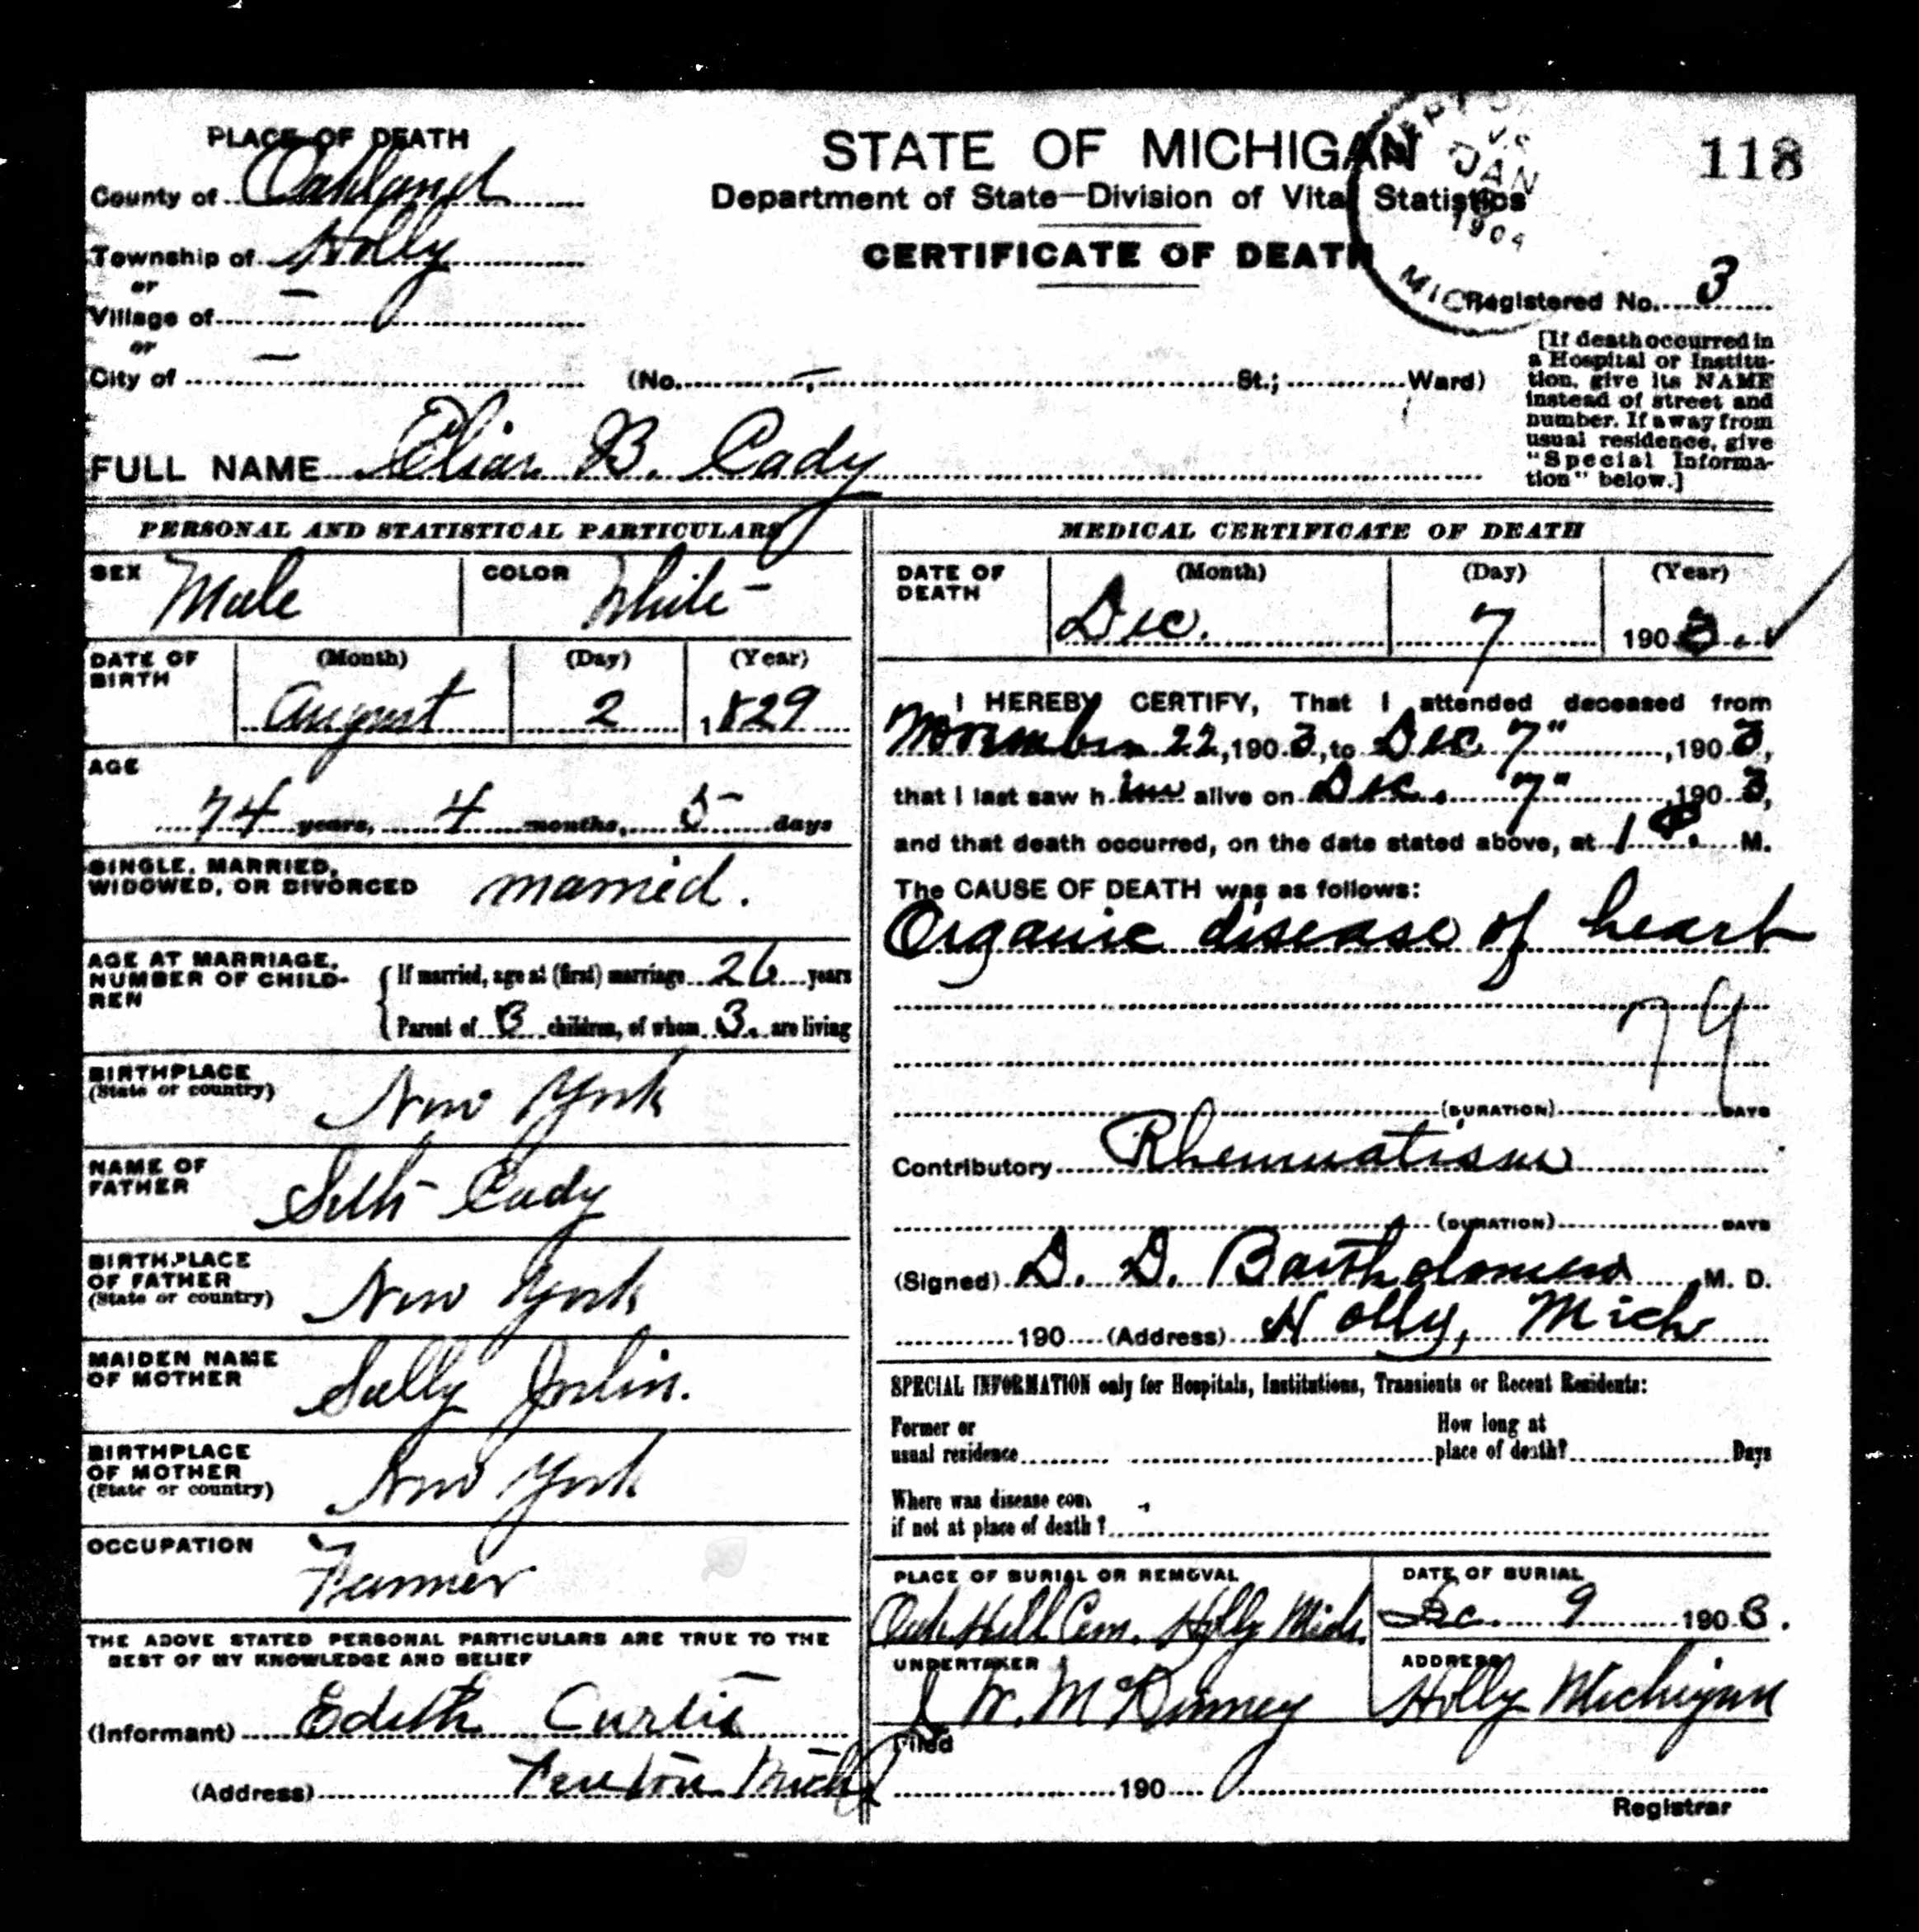 PLACE OF DEATH
County of Oakland
Township of Holly
or
Village of —
or
City of —
STATE OF MICHIGAN
Department of State—Division of Vital Statistics
CERTIFICATE OF DEATH
JAN
1904
MIC
118
Registered No. 3
(No. — St.; Ward)
[If death occurred in
a Hospital or Institu-
tion, give its NAME
instead of street and
number. If away from
usual residence, give
"Special Informa-
tion" below.]
FULL NAME Elias B. Cady
PERSONAL AND STATISTICAL PARTICULARS
SEX Male COLOR White
DATE OF BIRTH (Month) August (Day) 2 (Year) 1829
AGE
74 years, 4 months, 5 days
SINGLE, MARRIED,
WIDOWED, OR DIVORCED married.
AGE AT MARRIAGE,
NUMBER OF CHILD-
REN
If married, age at (first) marriage 26 years
Parent of 3 children, of whom 3. are living
BIRTHPLACE
(State or country) New York
NAME OF
FATHER Seth Cady
BIRTHPLACE
OF FATHER
(State or country) New York
MAIDEN NAME
OF MOTHER Sally Joslin.
BIRTHPLACE
OF MOTHER
(State or country) New York
OCCUPATION
Farmer
THE ABOVE STATED PERSONAL PARTICULARS ARE TRUE TO THE
BEST OF MY KNOWLEDGE AND BELIEF
(Informant) Edith Curtis
(Address) Fenton Mich
MEDICAL CERTIFICATE OF DEATH
DATE OF DEATH (Month) Dec. (Day) 7 (Year) 1903.
I HEREBY CERTIFY, That I attended deceased from
November 22, 1903, to Dec 7", 1903,
that I last saw him alive on Dec. 7" 1903,
and that death occurred, on the date stated above, at 1 P. M.
The CAUSE OF DEATH was as follows:
Organic disease of heart
79
(DURATION) DAYS
Contributory Rheumatism
(DURATION) DAYS
(Signed) D. D. Bartholomew M. D.
190 (Address) Holly, Mich
SPECIAL INFORMATION only for Hospitals, Institutions, Transients or Recent Residents:
Former or
usual residence
How long at
place of death? Days
Where was disease con
if not at place of death?
PLACE OF BURIAL OR REMOVAL
Oak Hill Cem. Holly Mich.
DATE OF BURIAL
Dec. 9 1903.
UNDERTAKER
J W. McKinney
ADDRESS
Holly Michigan
Filed
190
Registrar